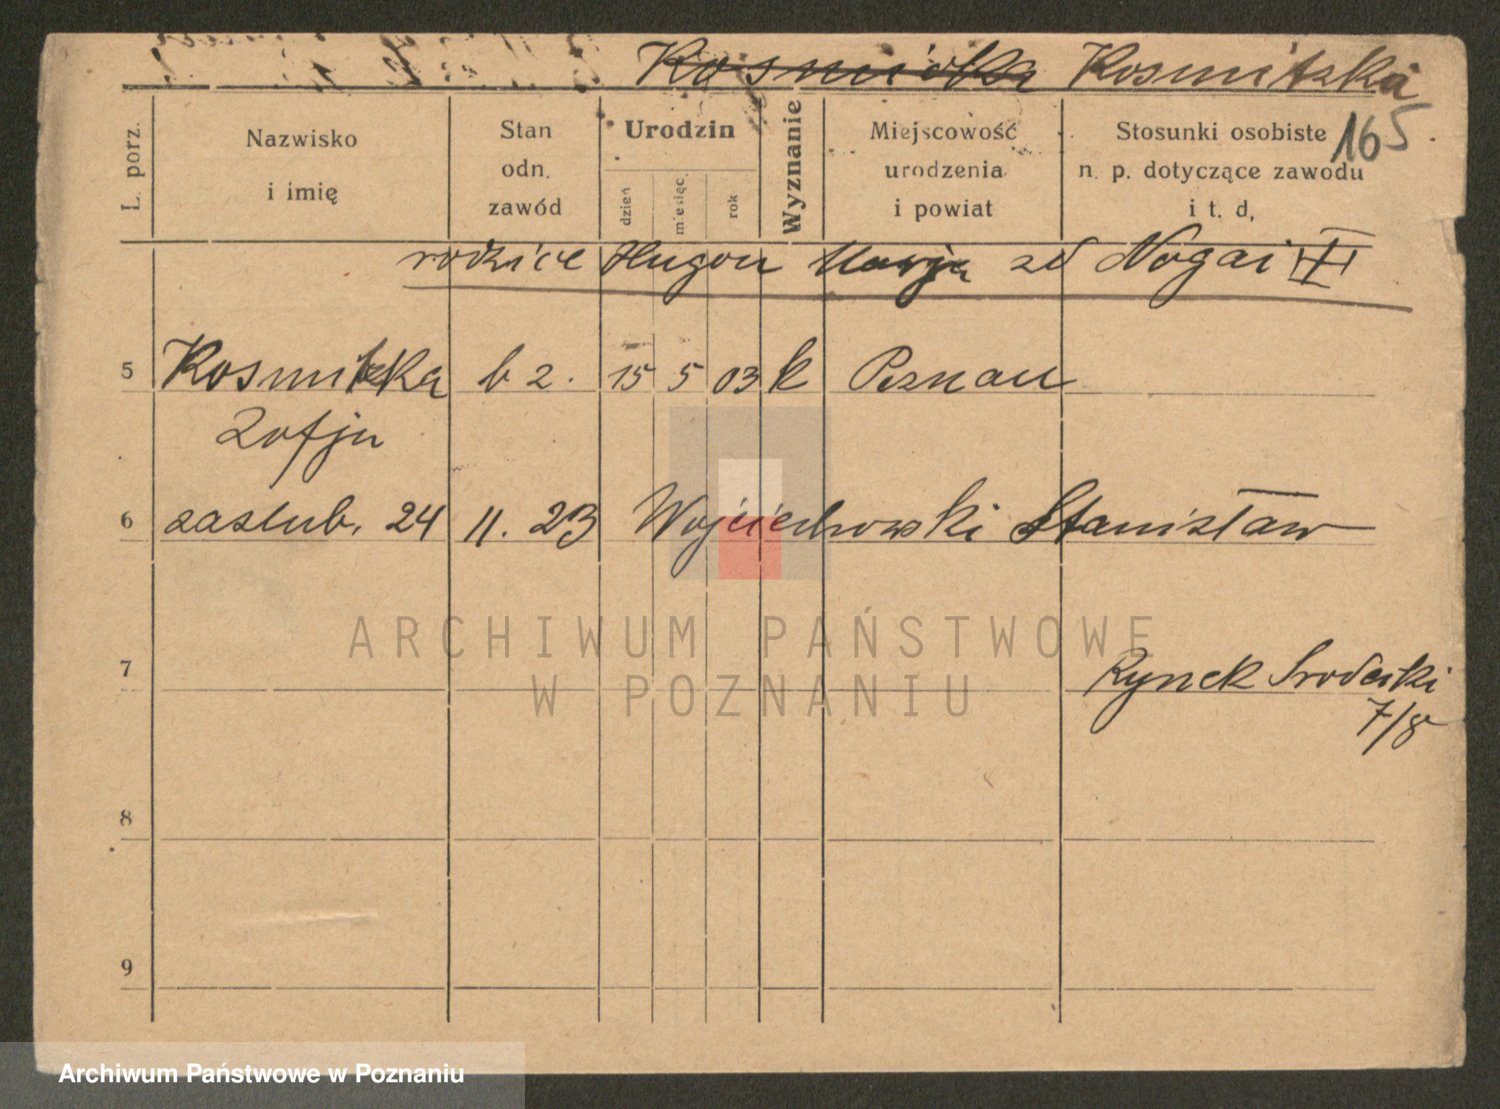 Kosmitzka
165
L. porz.
Nazwisko
i imię
Stan
odn.
zawód
Urodzin
dzień
miesiąc
rok
Wyznanie
Miejscowość
urodzenia
i powiat
Stosunki osobiste
n. p. dotyczące zawodu
i t. d,
rodzice Hugon Marja zd Nogaj
5 Kosmitzka b z. 15 5 03 k Poznań
Zofja
6 zaślub. 24 11. 23 Wojciechowski Stanisław
ARCHIWUM PAŃSTWOWE
W POZNANIU
7
Rynek Srodecki
7/8
8
9
Archiwum Państwowe w Poznaniu